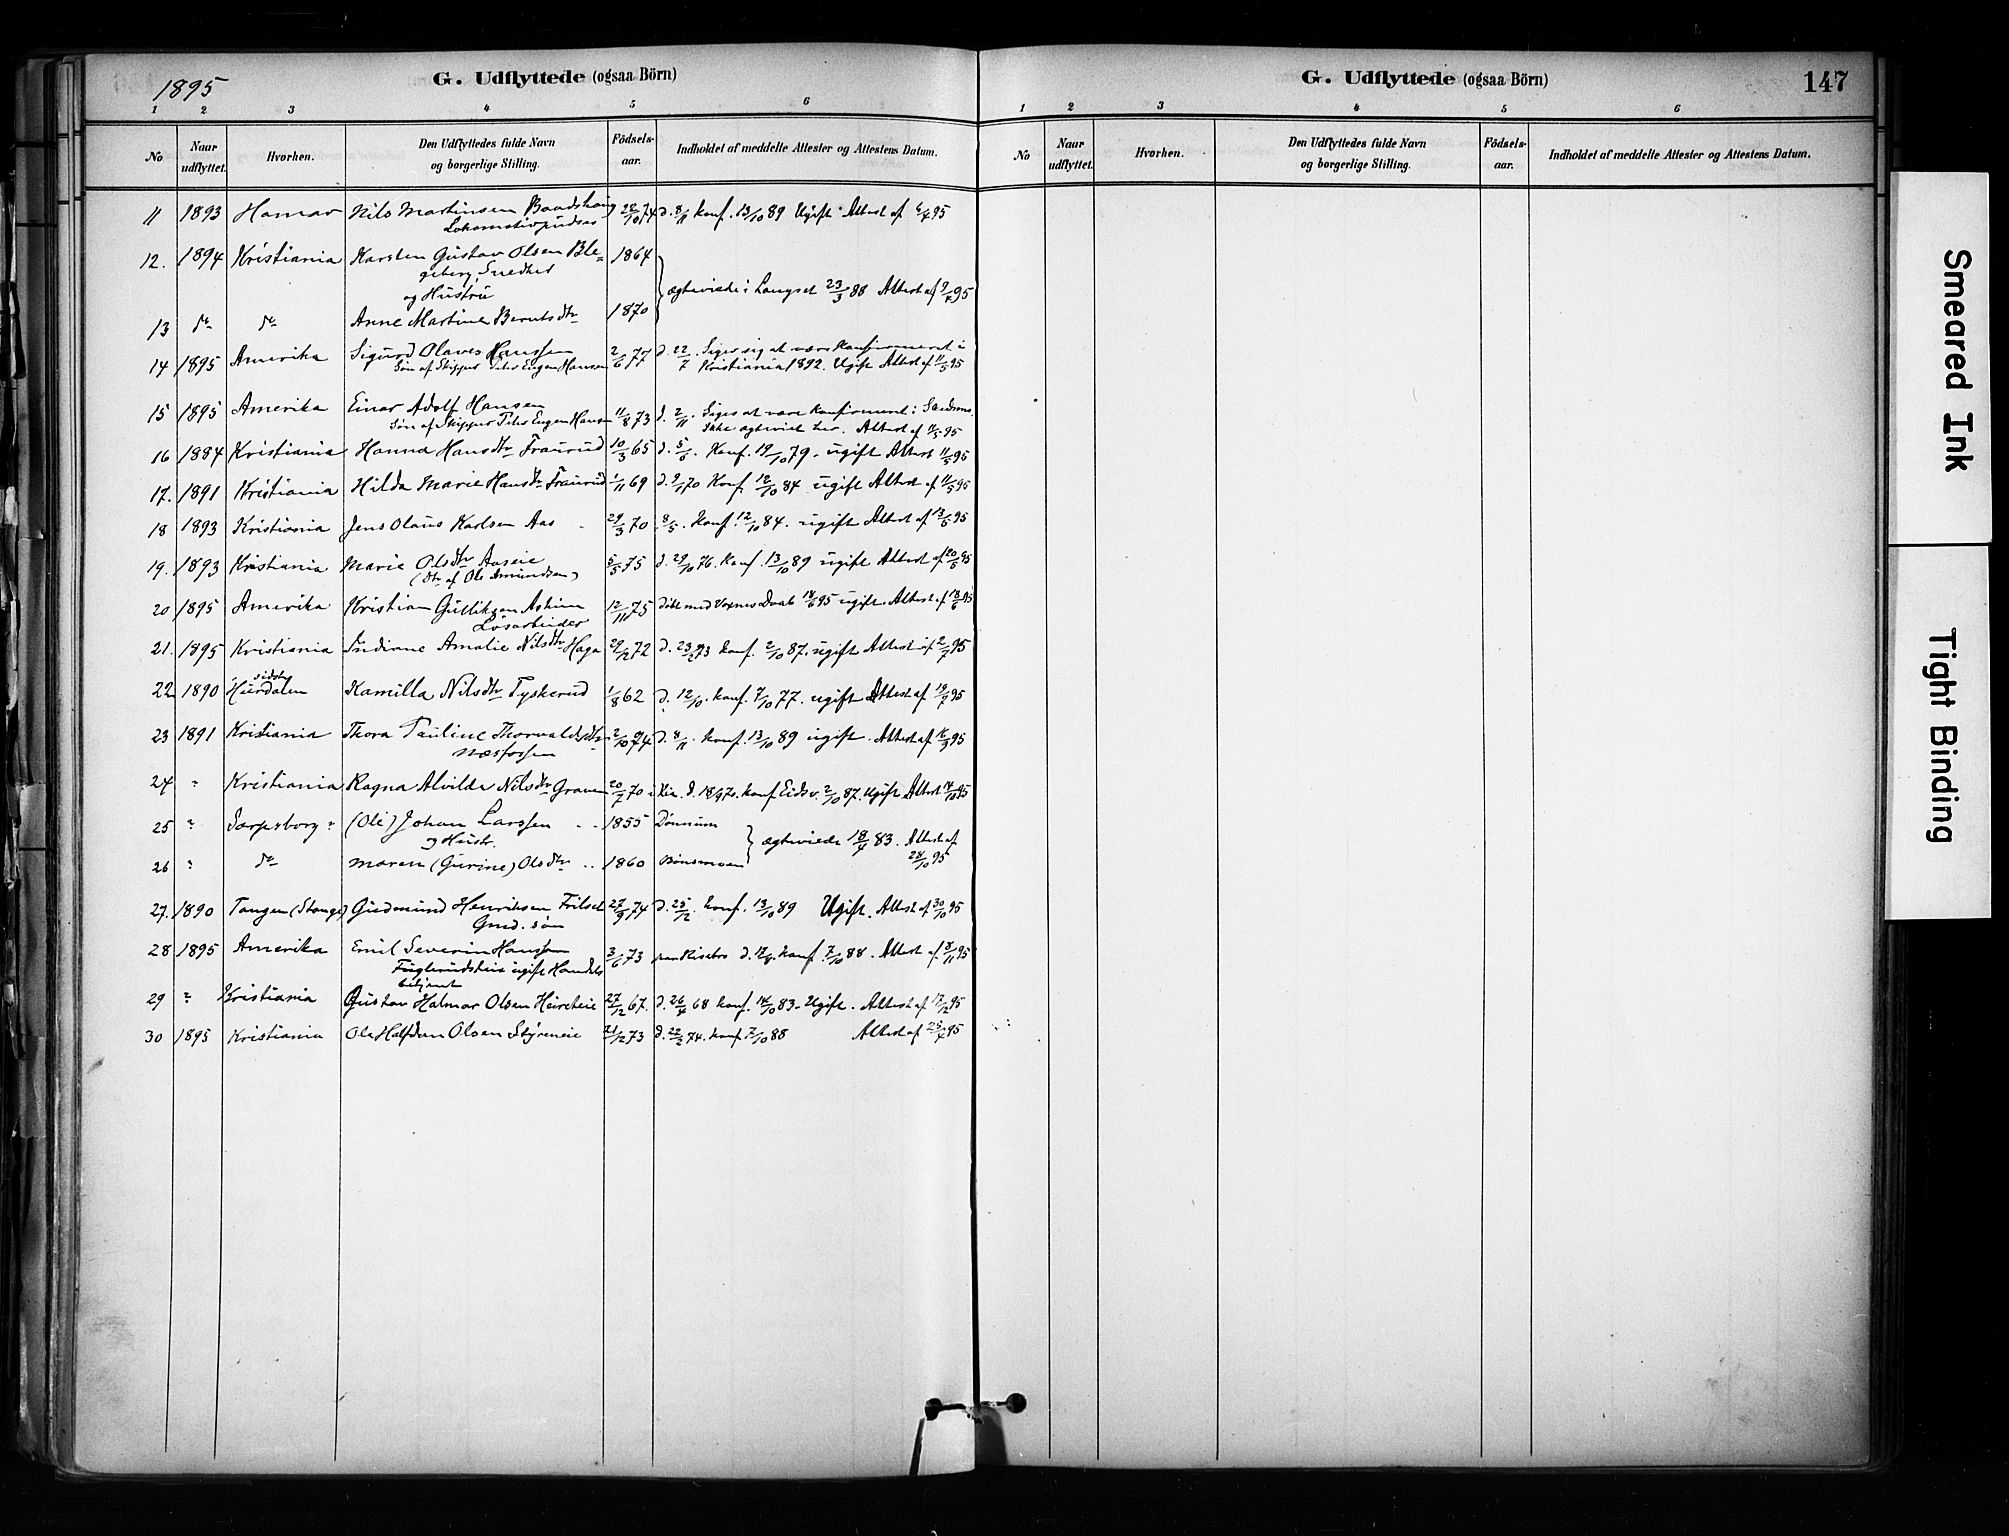 1895
G. Udflyttede (ogsaa Börn)
1 2 3 4 5 6
No
Naar udflyttet.
Hvorhen.
Den Udflyttedes fulde Navn og borgerlige Stilling.
Födsels-aar.
Indholdet af meddelte Attester og Attestens Datum.
11 1893 Hamar Nils Martinsen Baadshaug 28/10 74 d. 8/11 konf. 13/10 89 Ugift. Attest af 6/4 95
Lokomotivpudser
12. 1894 Kristiania Karsten Gustav Olsen Ble= 1864
geberg, Snedker
og Hustru
ægteviede i Langset 23/3 88 Attest af 9/4 95
13 do do Anne Martine Berntsdtr 1870
14 1895 Amerika Sigurd Olaves Hanssen 2/6 77 d. 22/7. Siger sig at være konfirmeret i
Søn af Skipper Peter Eugen Hansen Kristiania 1892. Ugift Attest af 11/5 95
15 1895 Amerika Einar Adolf Hansen 11/8 73 d. 2/11. Siges at være konfirmeret i
Søn af Skipper Peter Eugen Hansen Ikke ægteviet her. Attest af 11/5 95
16 1884 Kristiania Hanna Hansdtr Traurud 10/3 65 d. 5/6. Konf. 19/10 79. ugift Attest 11/5 95
17. 1891 Kristiania Hilda Marie Hansdtr Traurud 1/11 69 d. 9/1 70 Konf. 12/10 84 ugift Attest af 11/5 95
18 1893 Kristiania Jens Olaus Karlsen Aas 29/3 70 8/5. Konf. 12/10 84. ugift Attest af 13/5 95
19. 1893 Kristiania Marie Olsdtr Aaseie 5/5 75 d. 29/10 76. konf. 13/10 89 ugift Attest af 20/5 95
(dtr af Ole Amundsen)
20 1895 Amerika Kristian Gulliksen Askim 12/11 75 Døbt med Voxnes Daab 18/6 95 ugift. Attest af 18/6 95
Løsarbeider
21. 1895 Kristiania Indiane Amalie Nilsdtr Haga 29/12 72 d. 23/2 73 konf. 2/10 87. ugift Attest af 2/7 95
sidst
22 1890 Hurdalen Kamilla Nilsdtr Tyskerud 1/8 62 d. 12/10. konf. 7/10 77. ugift Attest af 19/7 95
23 1891 Kristiania Thora Pauline Thorvaldsdtr 2/10 74 d. 8/11. konf. 13/10 89 ugift. Attest af 16/9 95
Næsfossen
24 " Kristiania Ragna Alvilde Nilsdtr Graven 20/7 70 i Kra. konf Eidsv. 2/10 87. Ugift Attest 14/10 95
25 " Sarpsborg " (Ole) Johan Larssen 1855 Dønnum
og Hustr.
ægteviede 18/4 83. Attest af
26 " do Maren (Gurine) Olsdtr 1860 Bønsmoen 28/10 95
27. 1890 Tangen (Stange) Gudmund Henriksen Frilset 27/9 74 d. 25/12. konf. 13/10 89 Ugift. Attest af 30/10 95
Gmd. søn
28 1895 Amerika Emil Severin Hanssen 3/6 73 konf. 7/10 88. Attest af 8/11 95
Fuglerudseie ugift Handels
betjent
29 " Kristiania Gustav Halmar Olsen 27/12 67. d. 26/4 68 konf. 14/10 83. Ugift. Attest af 17/12 95
30 1895 Kristiania Ole Halfdan Olsen Styreneie 21/12 73 d. 22/2 74. konf. 7/10 88 Attest af 25/4 95
G. Udflyttede (ogsaa Börn)
147
1 2 3 4 5 6
No
Naar udflyttet.
Hvorhen.
Den Udflyttedes fulde Navn og borgerlige Stilling.
Födsels-aar.
Indholdet af meddelte Attester og Attestens Datum.
Smeared Ink
Tight Binding